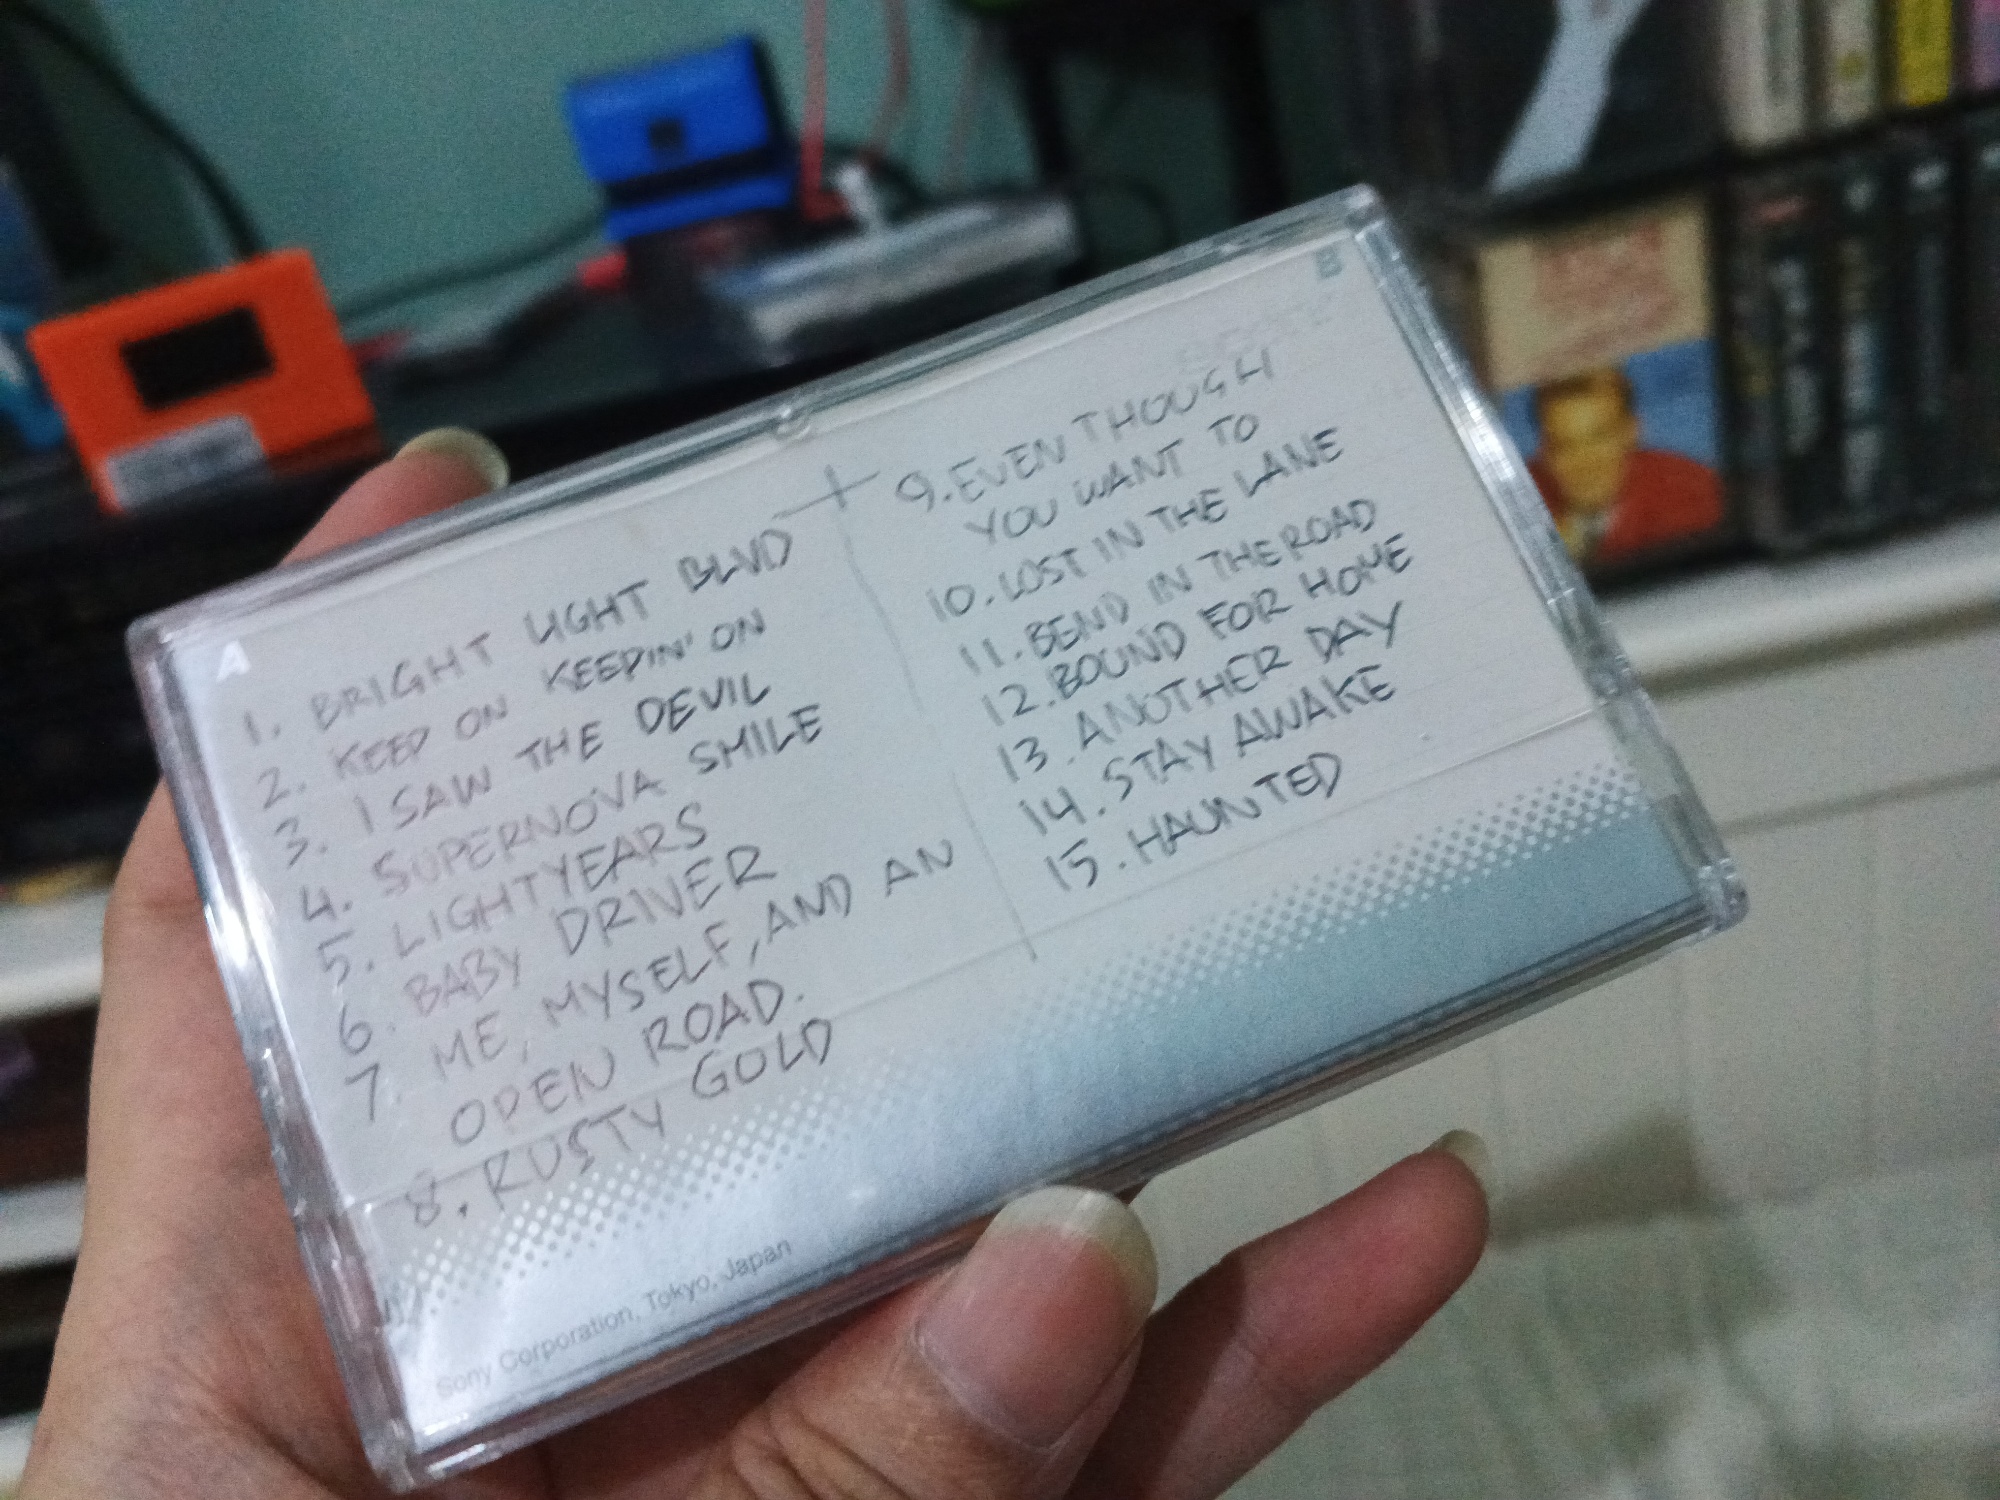 A
1. BRIGHT LIGHT BLVD
2. KEEP ON KEEPIN' ON
3. I SAW THE DEVIL
4. SUPERNOVA SMILE
5. LIGHTYEARS
6. BABY DRIVER
7. ME, MYSELF, AND AN
OPEN ROAD.
8. RUSTY GOLD
B
9. EVEN THOUGH
YOU WANT TO
10. LOST IN THE LANE
11. BEND IN THE ROAD
12. BOUND FOR HOME
13. ANOTHER DAY
14. STAY AWAKE
15. HAUNTED
Sony Corporation, Tokyo, Japan